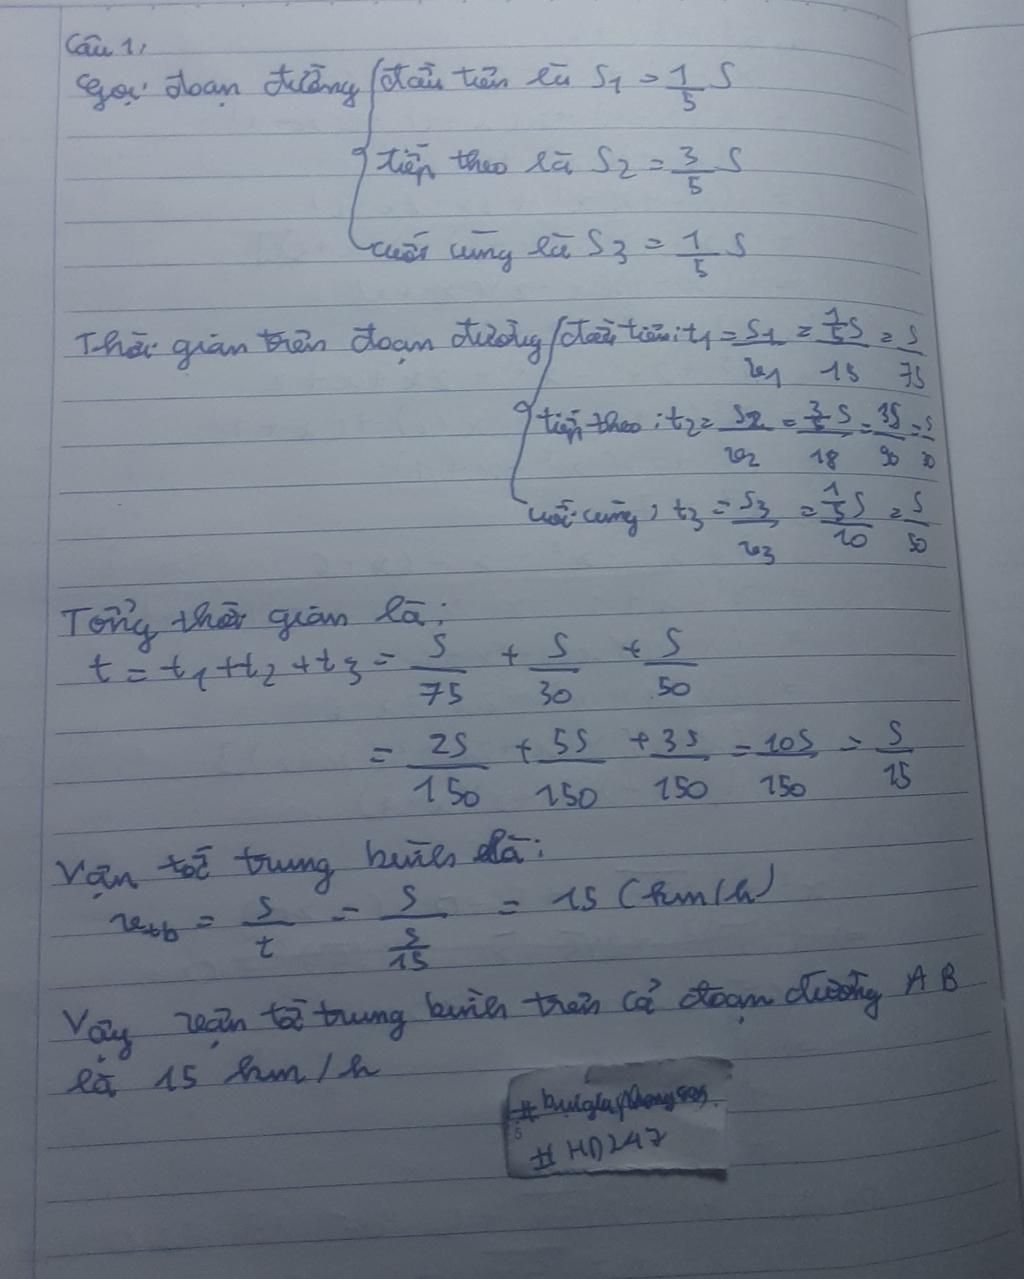 Câu 1,
Gọi đoạn đường đầu tiên là S1 = 1/5 S
tiếp theo là S2 = 3/5 S
cuối cùng là S3 = 1/5 S
Thời gian trên đoạn đường đầu tiên: t1 = S1/v1 = 1/5S/15 = S/75
tiếp theo: t2 = S2/v2 = 3/5S/18 = 3S/90 = S/30
cuối cùng, t3 = S3/v3 = 1/5S/10 = S/50
Tổng thời gian là:
t = t1 + t2 + t3 = S/75 + S/30 + S/50
= 2S/150 + 5S/150 + 3S/150 = 10S/150 = S/15
Vận tốc trung bình là:
vtb = S/t = S/S/15 = 15 (km/h)
Vậy vận tốc trung bình trên cả đoạn đường AB
là 15 km/h
# HD247